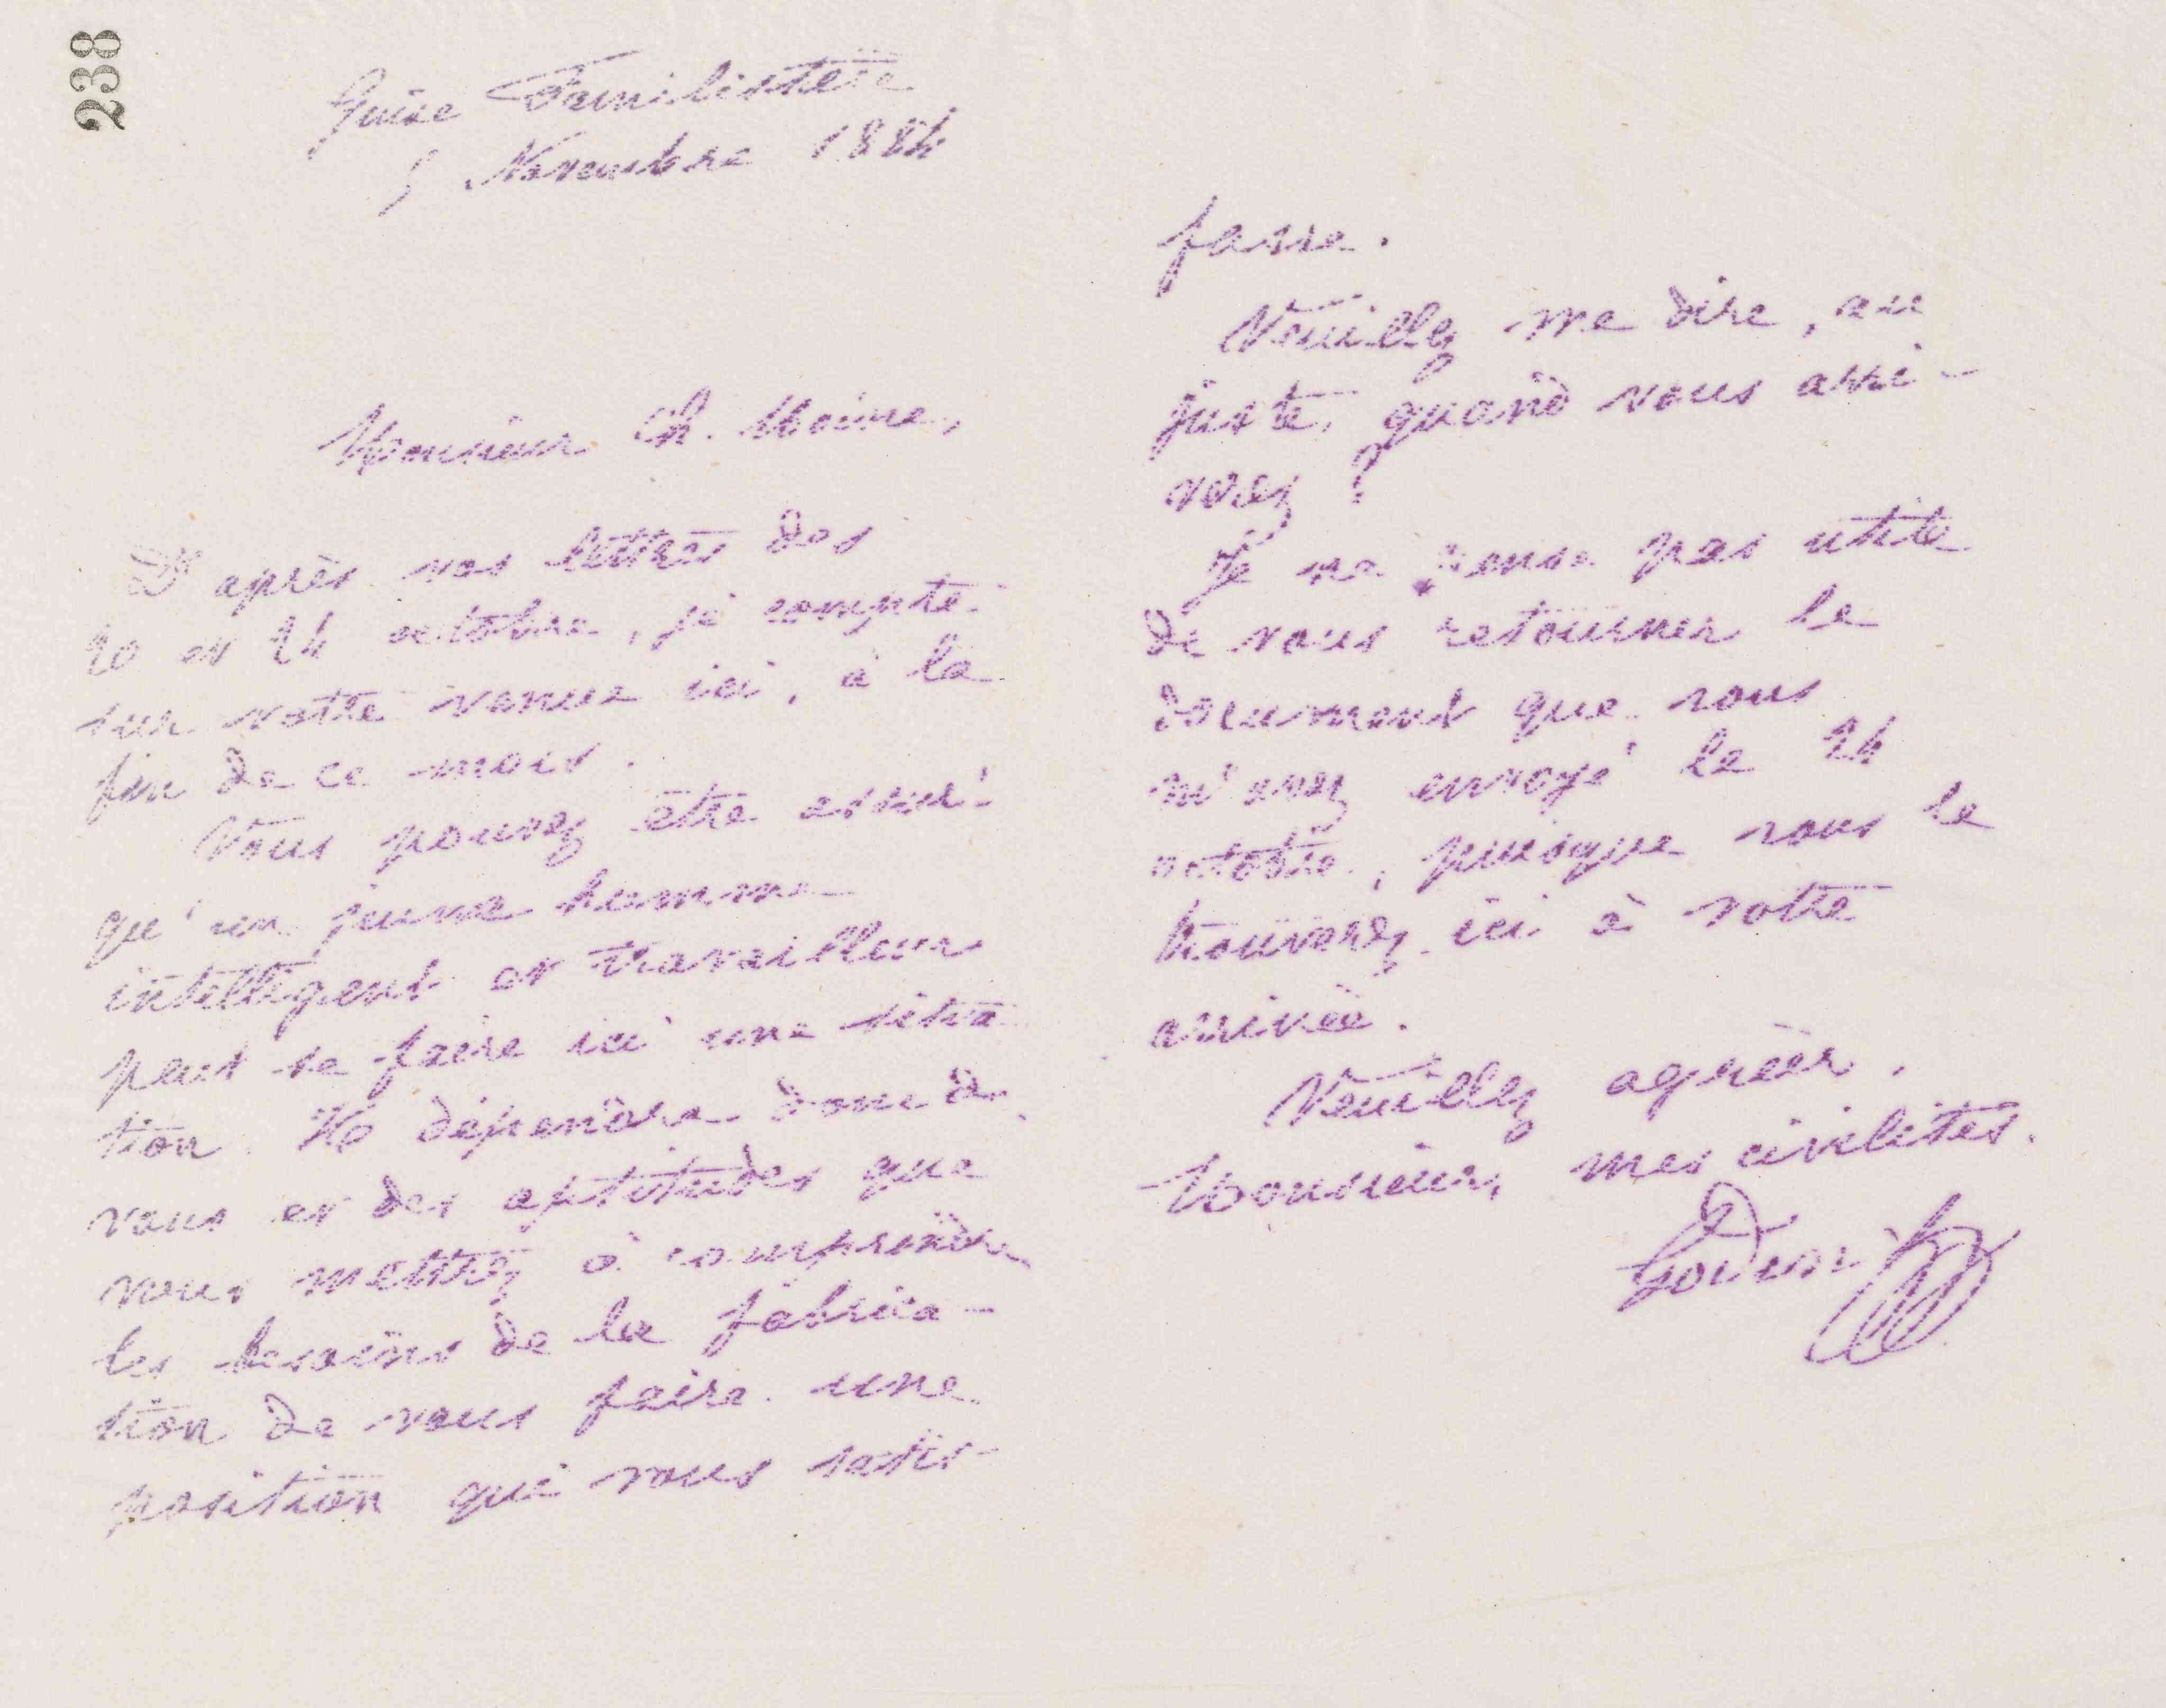 238
Guise Familistère
5 Novembre 1884
Monsieur Ch. Moine,
D'après vos lettres des
20 et 24 octobre, je compte
sur votre venue ici, à la
fin de ce mois.
Vous pouvez être assuré
qu'un jeune homme
intelligent et travailleur
peut se faire ici une situa
tion. Il dépendra donc de
vous et des aptitudes que
vous mettrez à comprendre
les besoins de la fabrica-
tion de vous faire une
position qui vous satis-
fasse.
Veuillez me dire, au
juste, quand vous arri-
verez ?
Je ne pense pas utile
de vous retourner le
document que vous
m'avez envoyé le 24
octobre, puisque vous le
trouverez ici à votre
arrivée.
Veuillez agréer,
Monsieur, mes civilités.
Godin